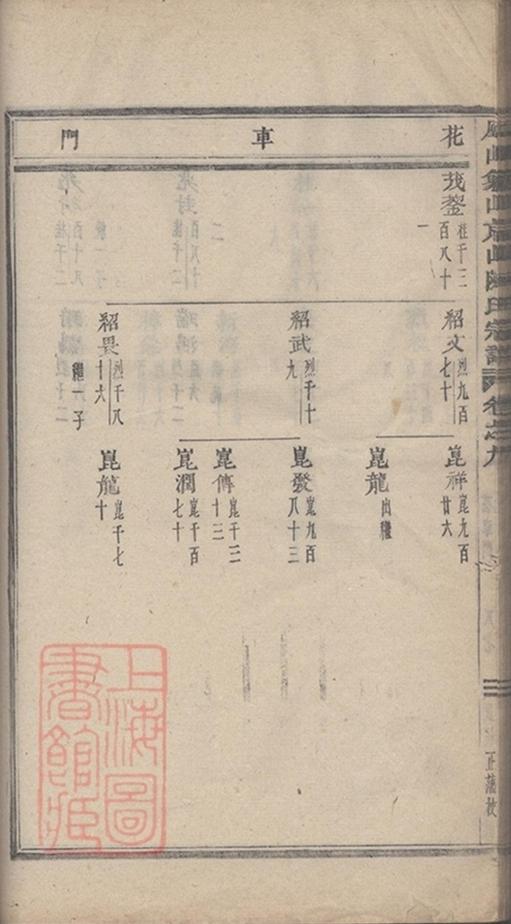 花車門
桂千三
百八十
一
紹文
烈九百
七十
紹武
烈千十
九
烈千八
十六
繼一子
崑祥
崑九百
廿六
崑龍
出繼
崑發
崑九百
八十三
崑傳
崑千三
十三
崑潤
崑千百
七十
崑龍
崑千七
十
陳氏宗譜
卷之九
上海圖書館藏